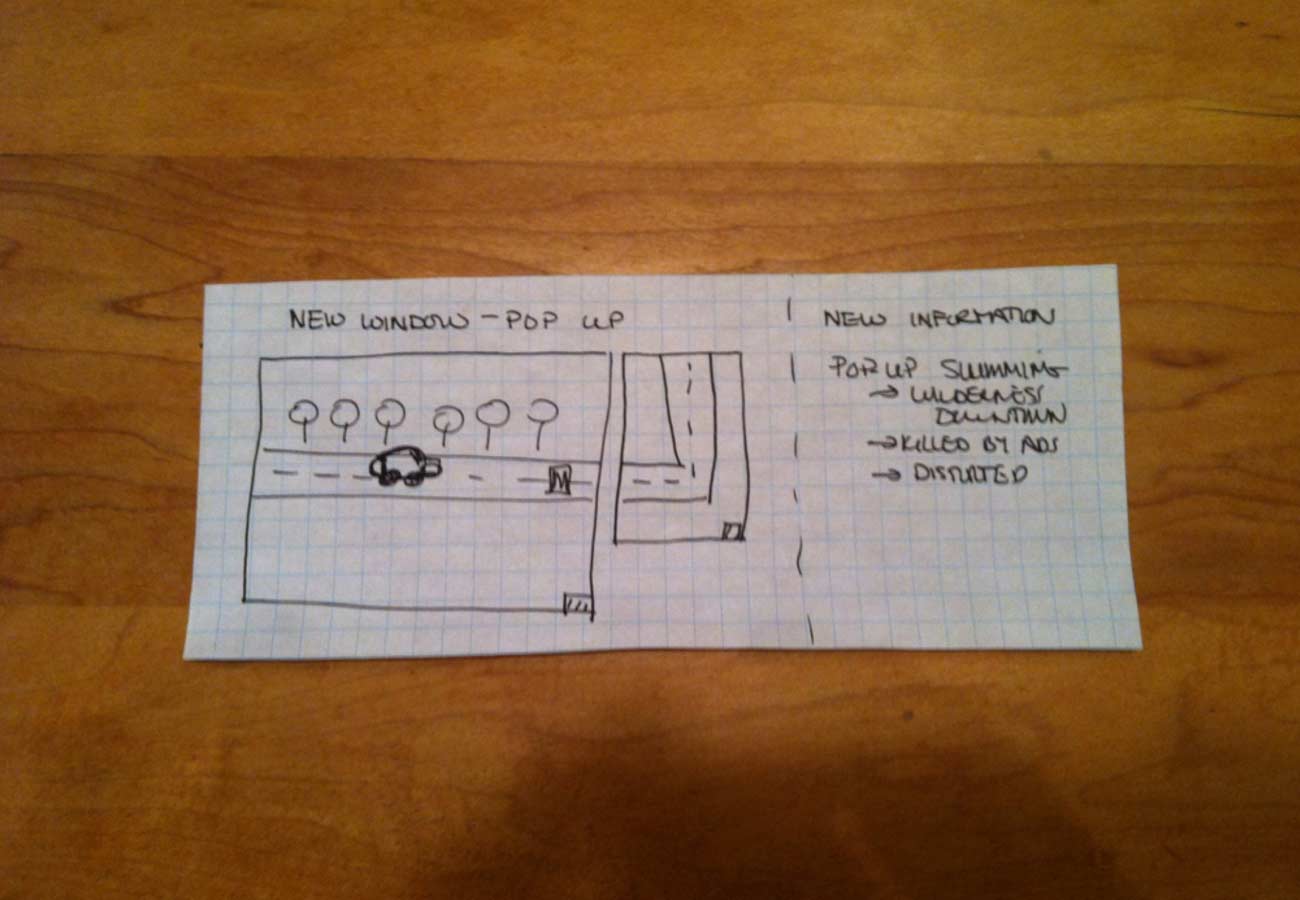 NEW WINDOW - POP UP
M
NEW INFORMATION
POP UP SWIMMING
→ WILDERNESS
DOWNTOWN
→ KILLED BY ADS
→ DISTURTED